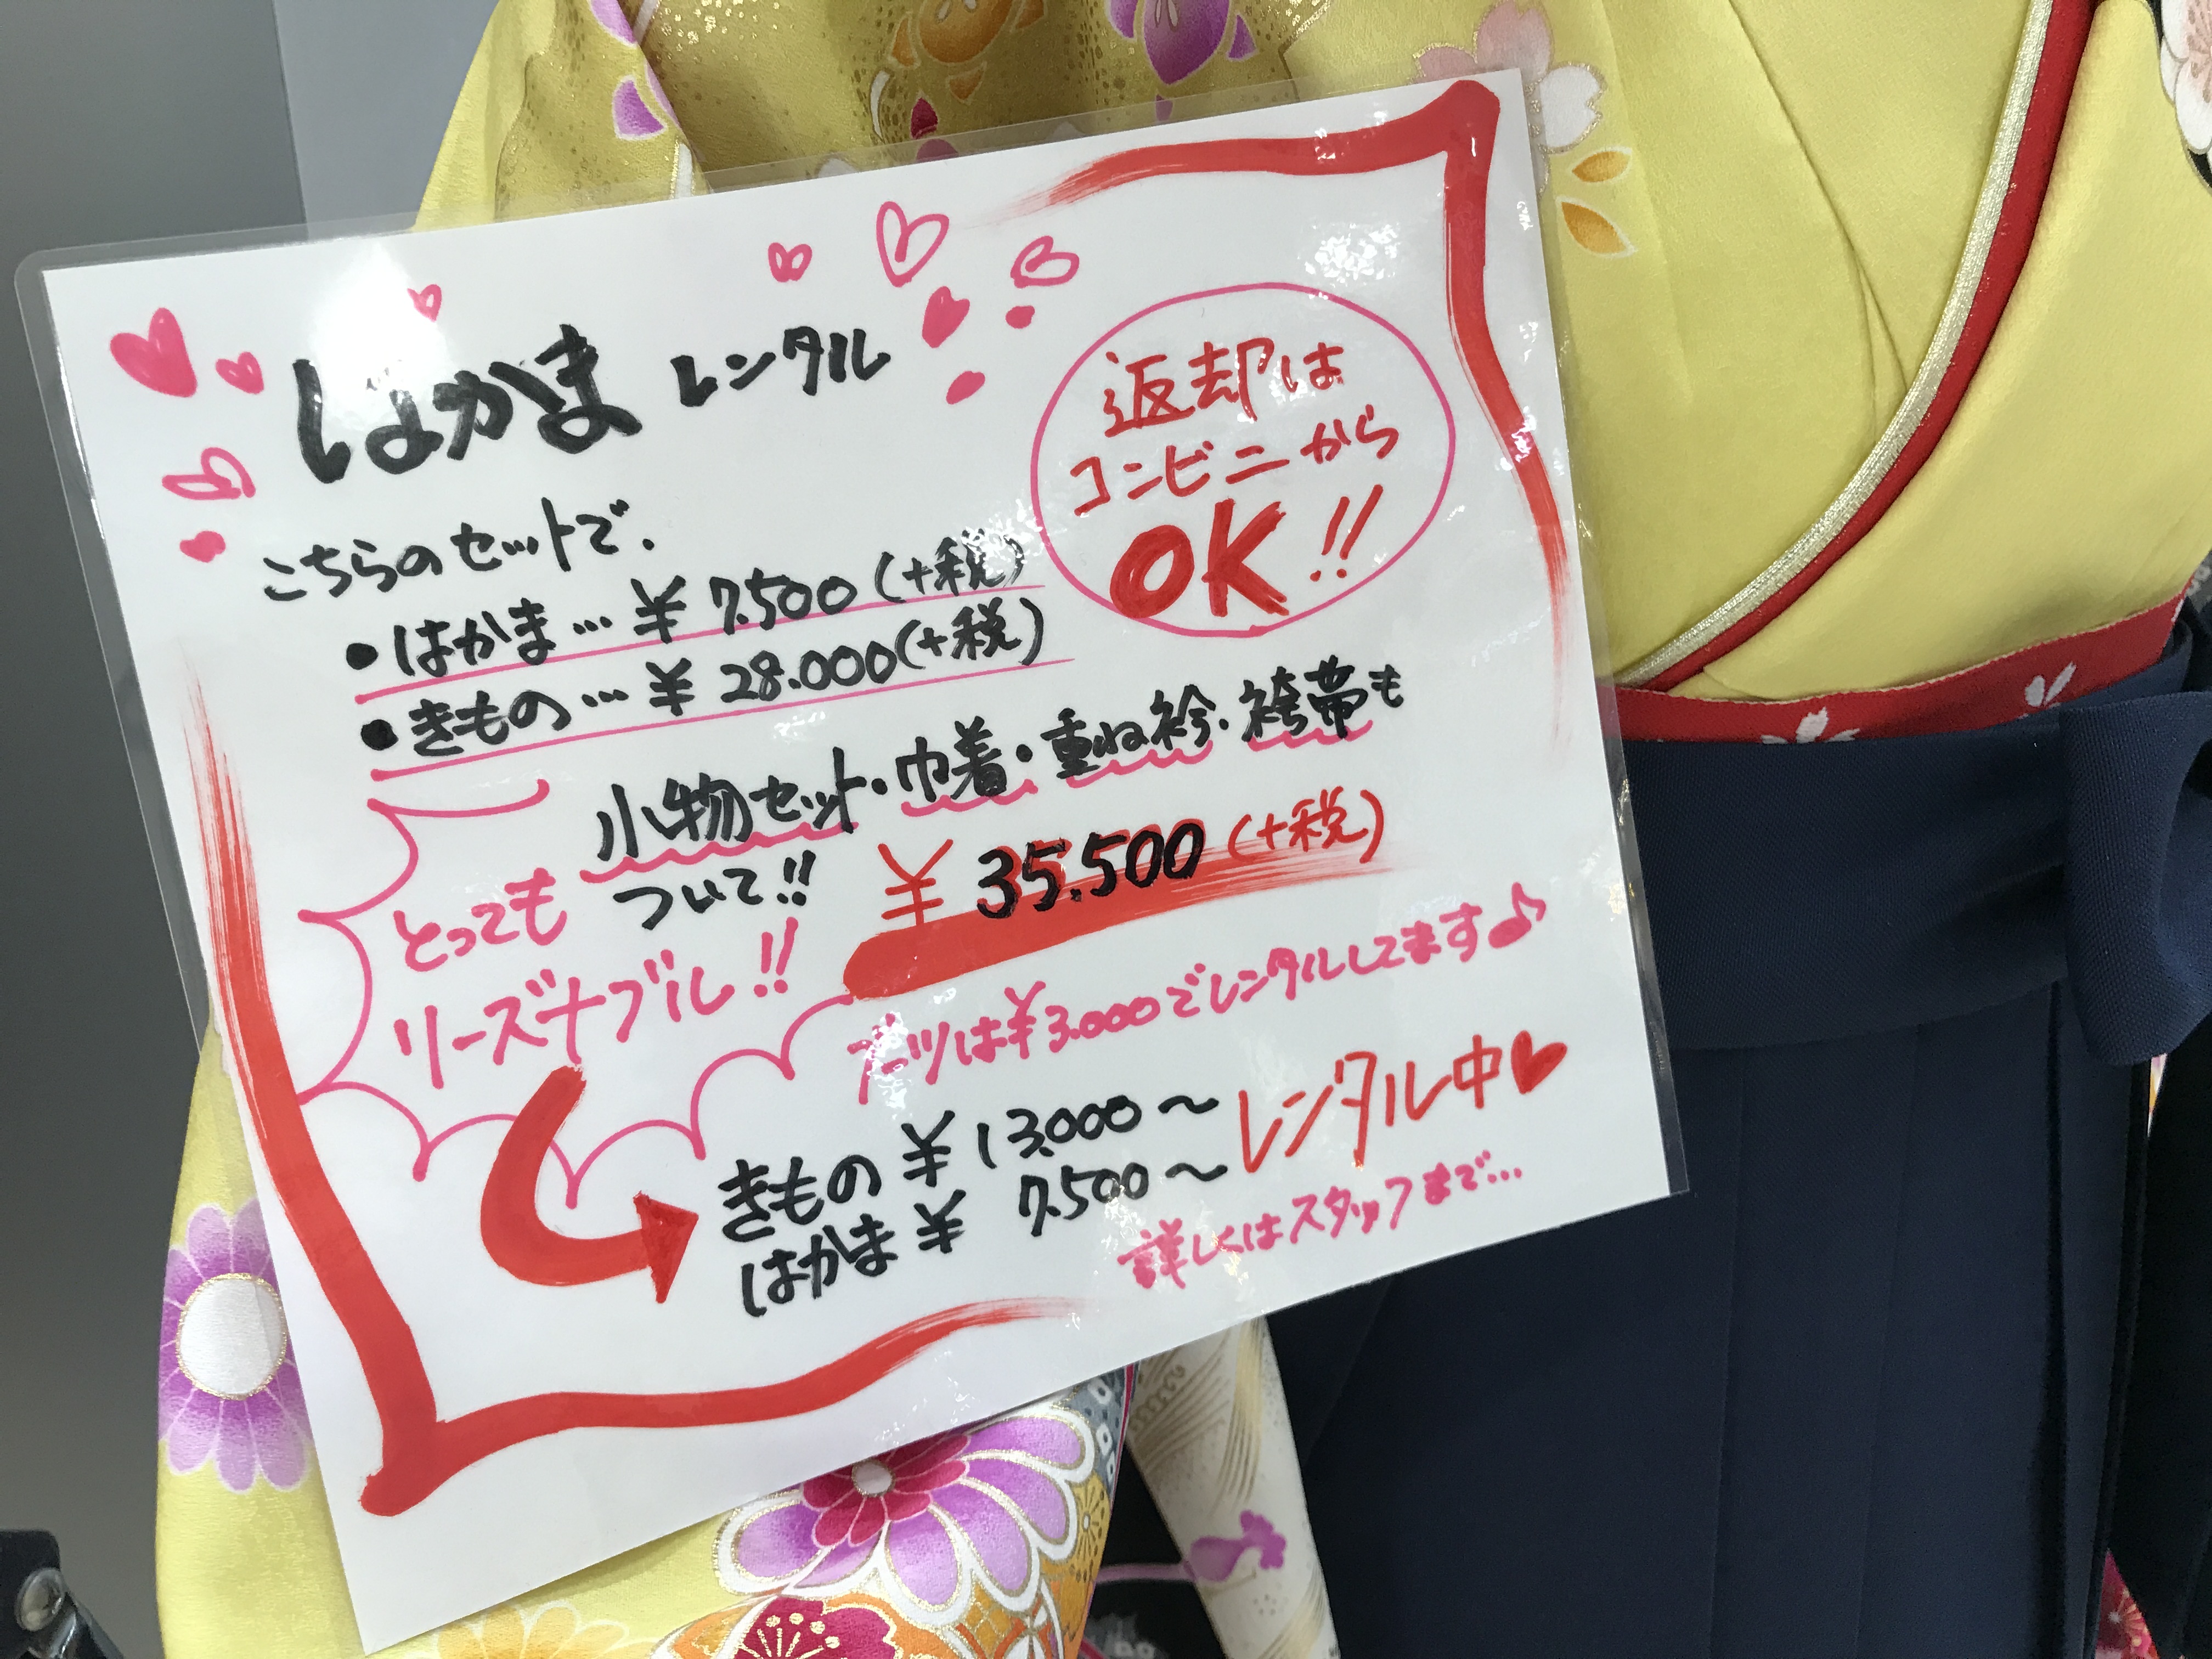 はかま レンタル
返却は
コンビニから
OK!!
こちらのセットで.
・はかま…¥7.500(+税)
・きもの…¥28.000(+税)
小物セット・巾着・重ね衿・袴帯も
ついて!!
¥35.500(+税)
とっても
リーズナブル!!
ブーツは¥3.000でレンタルしてます♪
きもの ¥13.000〜
はかま ¥7.500〜
レンタル中♥
詳しくはスタッフまで…